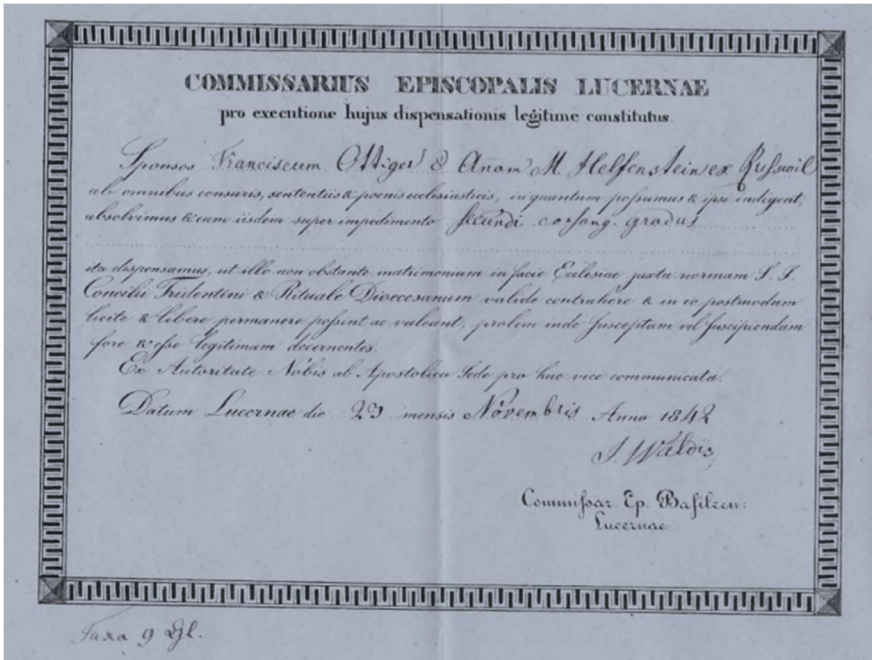 COMMISSARIUS EPISCOPALIS LUCERNAE
pro executione hujus dispensationis legitime constitutus.
Sponsos Franciscum Ottiger & Añam M. Helfenstein ex Rußwil
ab omnibus censuris, sententiis & poenis ecclesiasticis, in quantum possumus & ipsi indigent,
absolvimus & cum iisdem super impedimento secundi consang. gradus
ita dispensamus, ut illo non obstante matrimonium in facie Ecclesiae juxta normam S. S.
Concilii Tridentini & Rituale Dioecesanum valide contrahere & in eo postmodum
licite & libere permanere possint ac valeant, prolem inde susceptam vel suscipiendam
fore & esse legitimam decernentes.
Ex Autoritate Nobis ab Apostolica Sede pro hac vice communicata.
Datum Lucernae die 23 mensis Novembris Anno 1842
J. Waldis,
Commissar. Ep. Basileen:
Lucernae
Taxa 9